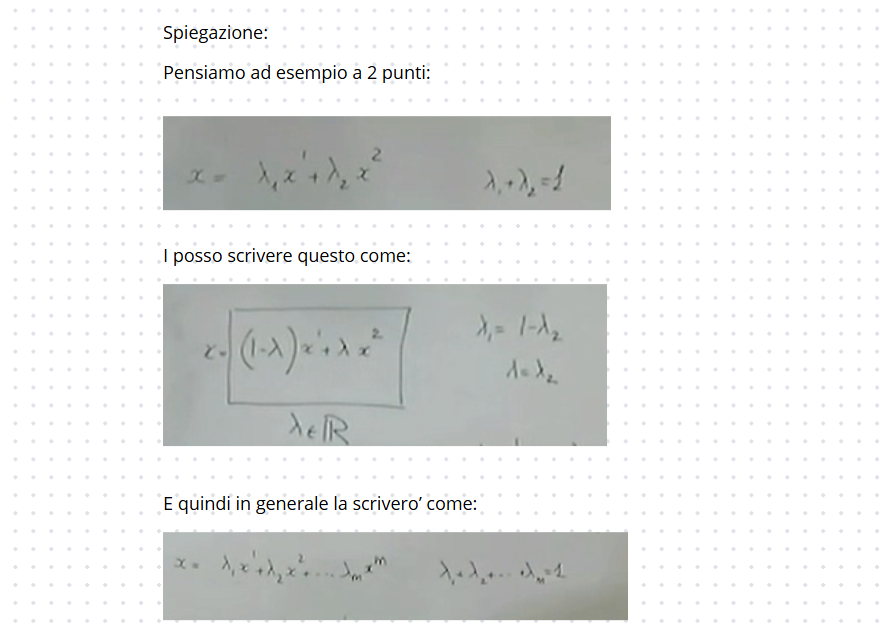 Spiegazione:
Pensiamo ad esempio a 2 punti:
x = λ₁x¹+λ₂x² λ₁+λ₂=1
I posso scrivere questo come:
x= (1-λ)x¹+λx² λ₁= 1-λ₂
λ=λ₂
λ∈ℝ
E quindi in generale la scrivero’ come:
x= λ₁x¹+λ₂x²+... λₘxᵐ λ₁+λ₂+...+λₘ=1